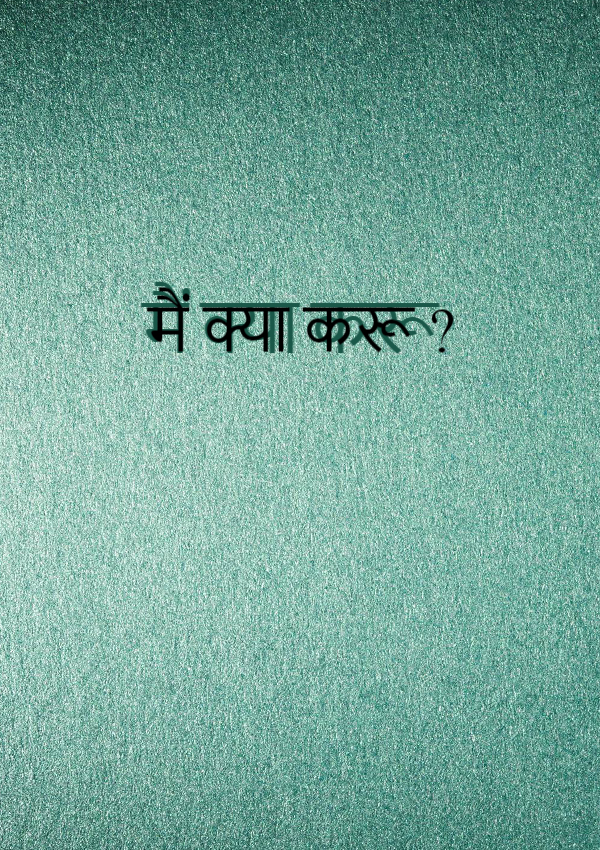 मैं क्या करू?